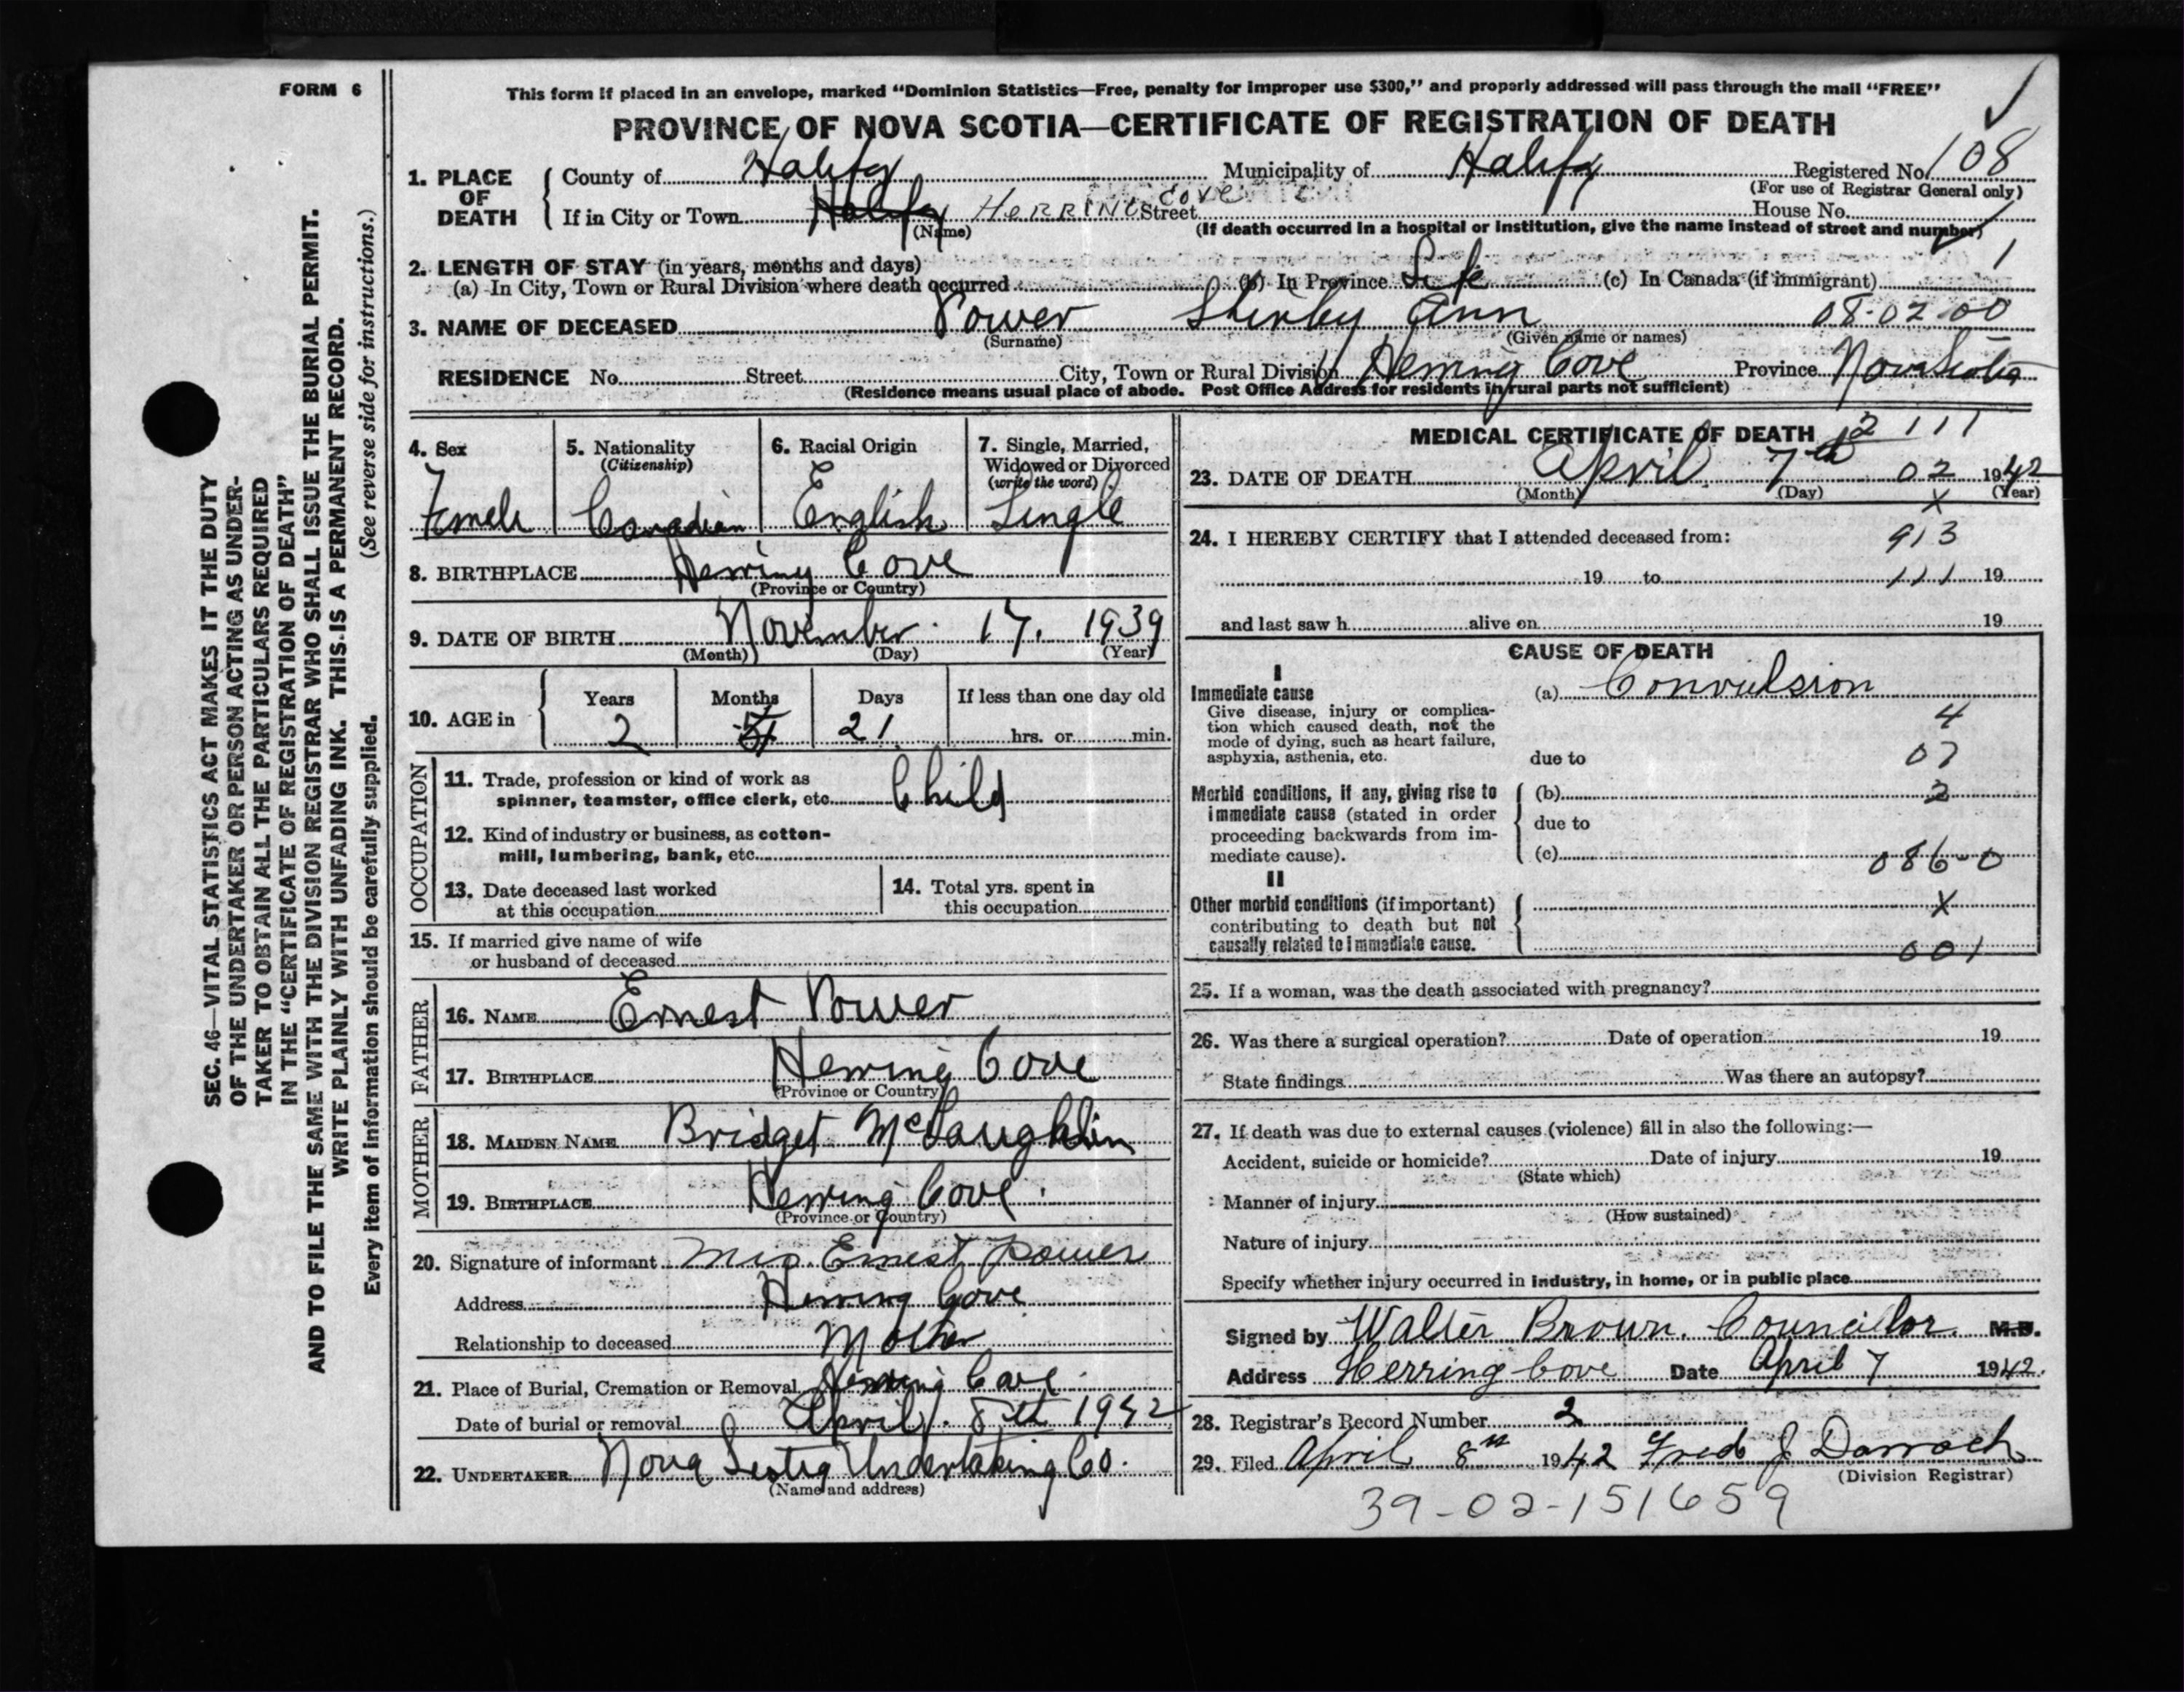 FORM 6
This form if placed in an envelope, marked "Dominion Statistics—Free, penalty for improper use $300," and properly addressed will pass through the mail "FREE"
PROVINCE OF NOVA SCOTIA—CERTIFICATE OF REGISTRATION OF DEATH
1. PLACE OF DEATH
County of Halifax Municipality of Halifax Registered No. 108
(For use of Registrar General only)
If in City or Town Halifax HERRING COVE Street House No.
(Name) (If death occurred in a hospital or institution, give the name instead of street and number)
2. LENGTH OF STAY (in years, months and days) 1
(a) In City, Town or Rural Division where death occurred (b) In Province Life (c) In Canada (if immigrant)
3. NAME OF DECEASED Power Shirley Ann 08-02-00
(Surname) (Given name or names)
RESIDENCE No. Street City, Town or Rural Division Herring Cove Province Nova Scotia
(Residence means usual place of abode. Post Office Address for residents in rural parts not sufficient)
SEC. 46—VITAL STATISTICS ACT MAKES IT THE DUTY
OF THE UNDERTAKER OR PERSON ACTING AS UNDER-
TAKER TO OBTAIN ALL THE PARTICULARS REQUIRED
IN THE "CERTIFICATE OF REGISTRATION OF DEATH"
AND TO FILE THE SAME WITH THE DIVISION REGISTRAR WHO SHALL ISSUE THE BURIAL PERMIT.
WRITE PLAINLY WITH UNFADING INK. THIS IS A PERMANENT RECORD.
Every item of information should be carefully supplied. (See reverse side for instructions.)
4. Sex 5. Nationality 6. Racial Origin 7. Single, Married,
(Citizenship) Widowed or Divorced
(write the word)
Female Canadian English Single
8. BIRTHPLACE Herring Cove
(Province or Country)
9. DATE OF BIRTH November 17. 1939
(Month) (Day) (Year)
10. AGE in Years Months Days If less than one day old
2 21 hrs. or min.
OCCUPATION
11. Trade, profession or kind of work as
spinner, teamster, office clerk, etc. Child
12. Kind of industry or business, as cotton-
mill, lumbering, bank, etc.
13. Date deceased last worked
at this occupation
14. Total yrs. spent in
this occupation
15. If married give name of wife
or husband of deceased
FATHER
16. NAME Ernest Power
17. BIRTHPLACE Herring Cove
(Province or Country)
MOTHER
18. MAIDEN NAME Bridget McLaughlin
19. BIRTHPLACE Herring Cove.
(Province or Country)
20. Signature of informant Mrs Ernest Power
Address Herring Cove
Relationship to deceased Mother
21. Place of Burial, Cremation or Removal Herring Cove
Date of burial or removal April 8th 1942
22. UNDERTAKER Nova Scotia Undertaking Co.
(Name and address)
MEDICAL CERTIFICATE OF DEATH 2 111
23. DATE OF DEATH April 7th 02 1942
(Month) (Day) (Year)
X
24. I HEREBY CERTIFY that I attended deceased from: 913
19 to 111 19
and last saw h alive on 19
CAUSE OF DEATH
I
Immediate cause (a) Convulsion
Give disease, injury or complica-
tion which caused death, not the 4
mode of dying, such as heart failure,
asphyxia, asthenia, etc. due to 07
Morbid conditions, if any, giving rise to (b) 2
immediate cause (stated in order due to
proceeding backwards from im-
mediate cause). (c) 086-0
II
Other morbid conditions (if important) X
contributing to death but not
causally related to immediate cause. 001
25. If a woman, was the death associated with pregnancy?
26. Was there a surgical operation? Date of operation 19
State findings Was there an autopsy?
27. If death was due to external causes (violence) fill in also the following:—
Accident, suicide or homicide? Date of injury 19
(State which)
Manner of injury
(How sustained)
Nature of injury
Specify whether injury occurred in industry, in home, or in public place
Signed by Walter Brown. Councillor. M.D.
Address Herring Cove Date April 7 1942.
28. Registrar's Record Number 2
29. Filed April 8th 1942 Fred J Darrach
(Division Registrar)
39-02-151659